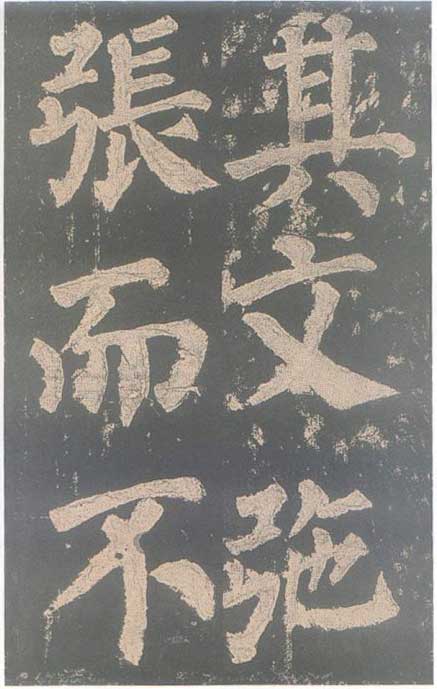 其文弛
張而不